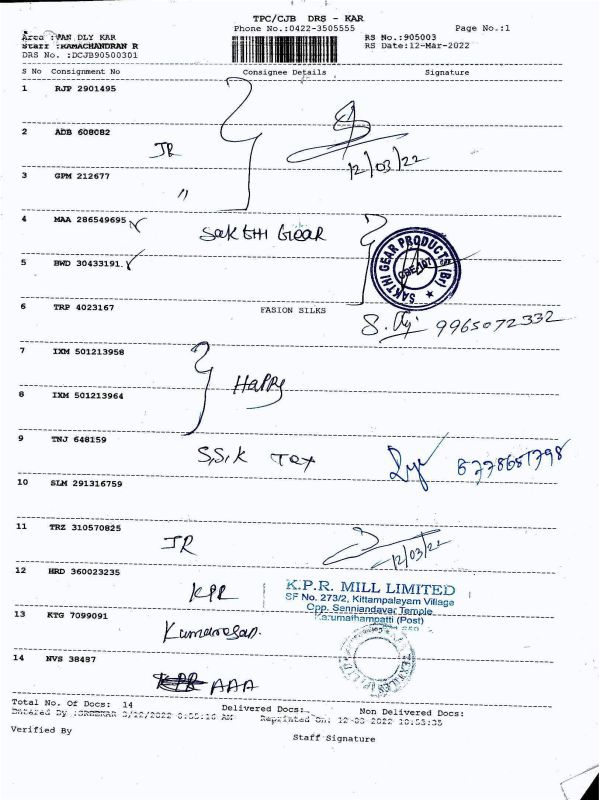 TPC/CJB DRS - KAR
Phone No.:0422-3505555 Page No.:1
Area :VAN DLY KAR RS No.:905003
Staff :RAMACHANDRAN R RS Date:12-Mar-2022
DRS No. :DCJB90500301
S No Consignment No Consignee Details Signature
1 RJP 2901495
2 ADB 608082
JR 12/03/22
3 GPM 212677
"
4 MAA 286549695
SAKTHI Gear
SAKTHI GEAR PRODUCTS (Br) ★ CBE-107
5 BWD 30433191
6 TRP 4023167 FASION SILKS
9965072332
7 IXM 501213958
Happy
8 IXM 501213964
9 TNJ 648159
S.S.K Tex
10 SLM 291316759
11 TRZ 310570825
JR 12/03/22
12 HRD 360023235
KPR
K.P.R. MILL LIMITED
SF No. 273/2, Kittampalayam Village
Opp. Senniandavar Temple
Karumathampatti (Post)
13 KTG 7099091
Kumaresan.
14 NVS 38487
KPR AAA
Total No. Of Docs: 14 Delivered Docs: Non Delivered Docs:
Entered By :SREEKAR 3/12/2022 8:55:16 AM Reprinted On: 12-03-2022 10:53:35
Verified By Staff Signature